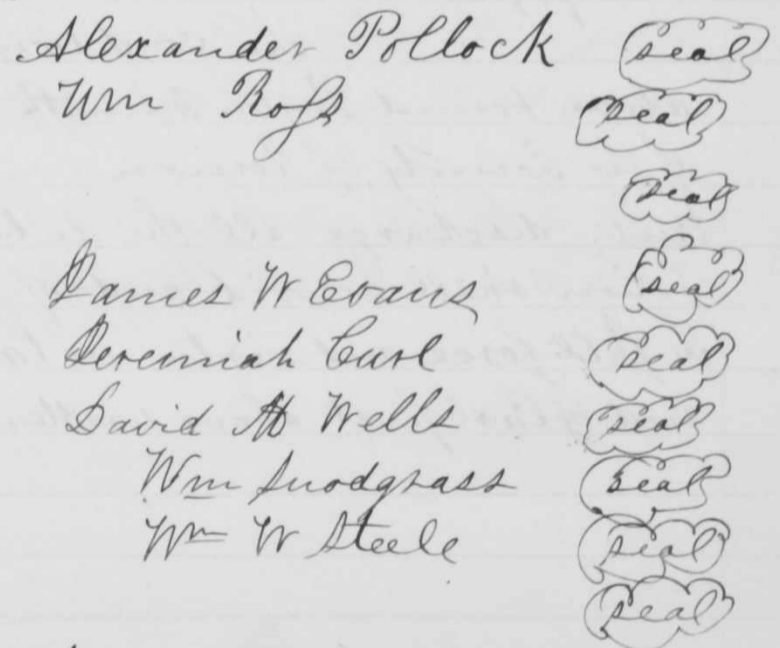 Alexander Pollock seal
Wm Ross seal
seal
James W Evans seal
Jeremiah Curl seal
David H Wells seal
Wm Snodgrass seal
Wm W Steele seal
seal